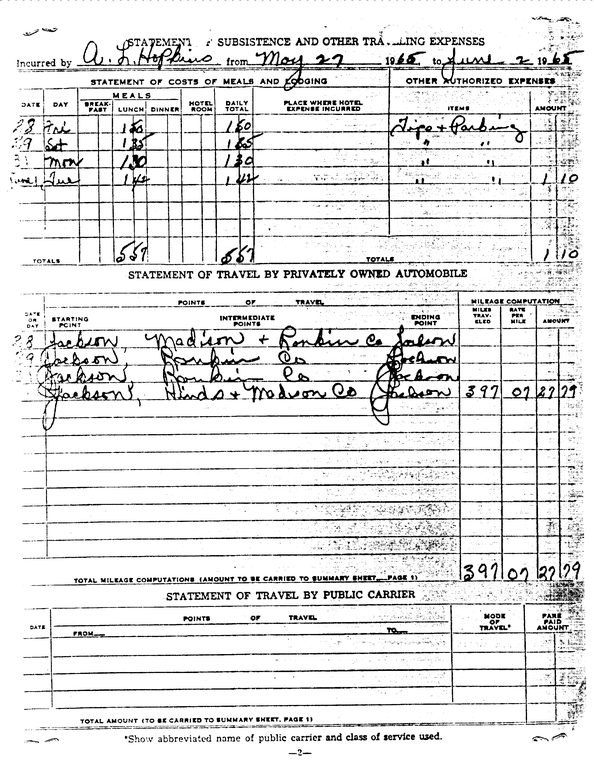 STATEMENT OF SUBSISTENCE AND OTHER TRAVELING EXPENSES
Incurred by A. L. Hopkins from May 27 1965 to June 2 1965
STATEMENT OF COSTS OF MEALS AND LODGING OTHER AUTHORIZED EXPENSES
MEALS
DATE DAY BREAK-FAST LUNCH DINNER HOTEL ROOM DAILY TOTAL PLACE WHERE HOTEL EXPENSE INCURRED ITEMS AMOUNT
28 Fri 1 50 1 50 Tips + Parking
29 Sat 1 35 1 35 " "
31 Mon 1 30 1 30 " "
June 1, Tue 1 42 1 42 " " 1 10
TOTALS 5 57 5 57 TOTALS 1 10
STATEMENT OF TRAVEL BY PRIVATELY OWNED AUTOMOBILE
POINTS OF TRAVEL MILEAGE COMPUTATION
DATE OR DAY STARTING POINT INTERMEDIATE POINTS ENDING POINT MILES TRAV-ELED RATE PER MILE AMOUNT
28 Jackson, Madison + Rankin Co Jackson
29 Jackson, Rankin Co Jackson
Jackson, Rankin Co Jackson
Jackson, Hinds + Madison Co Jackson 397 07 27 79
TOTAL MILEAGE COMPUTATIONS (AMOUNT TO BE CARRIED TO SUMMARY SHEET, PAGE 1) 397 07 27 79
STATEMENT OF TRAVEL BY PUBLIC CARRIER
DATE POINTS OF TRAVEL MODE OF TRAVEL* FARE PAID AMOUNT
FROM TO
TOTAL AMOUNT (TO BE CARRIED TO SUMMARY SHEET, PAGE 1)
*Show abbreviated name of public carrier and class of service used.
—2—